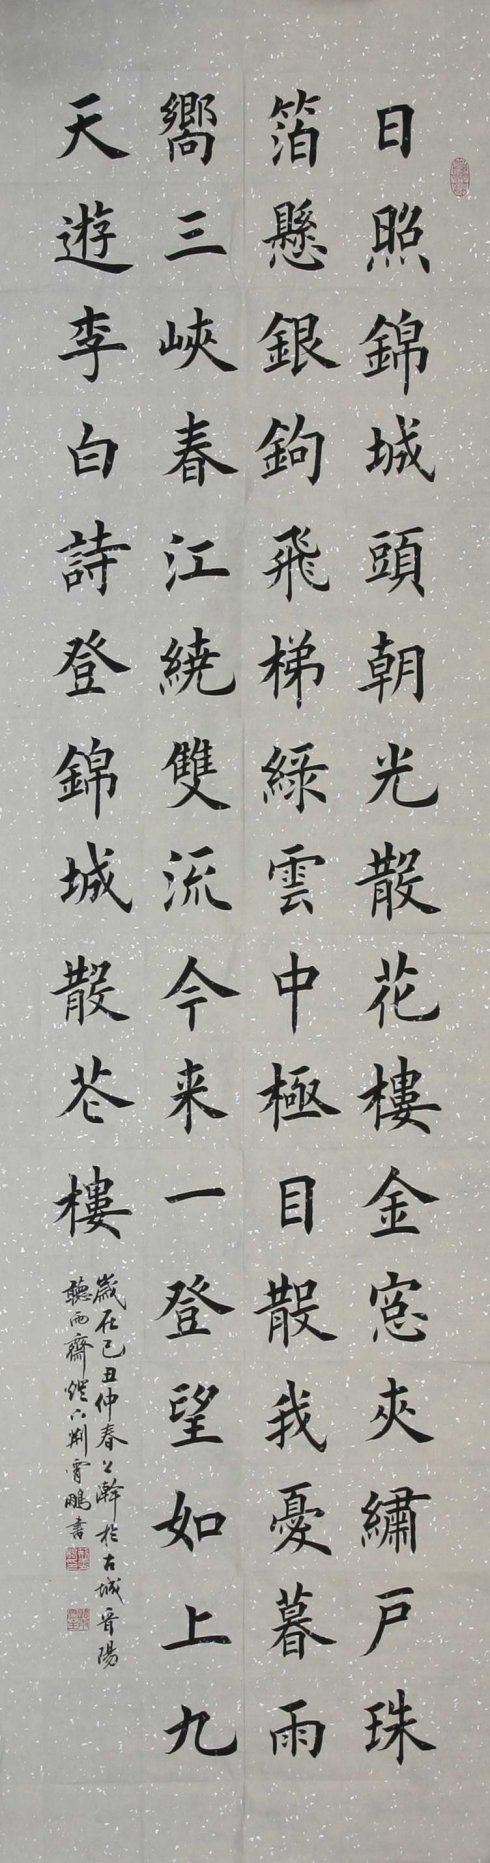 日照錦城頭朝光散花樓金窓夾繡戸珠
箔懸銀鉤飛梯綠雲中極目散我憂暮雨
嚮三峽春江繞雙流今来一登望如上九
天遊李白詩登錦城散花樓
歲在己丑仲春公幹於古城晉陽
聽雨齋燈下荆霄鵬書